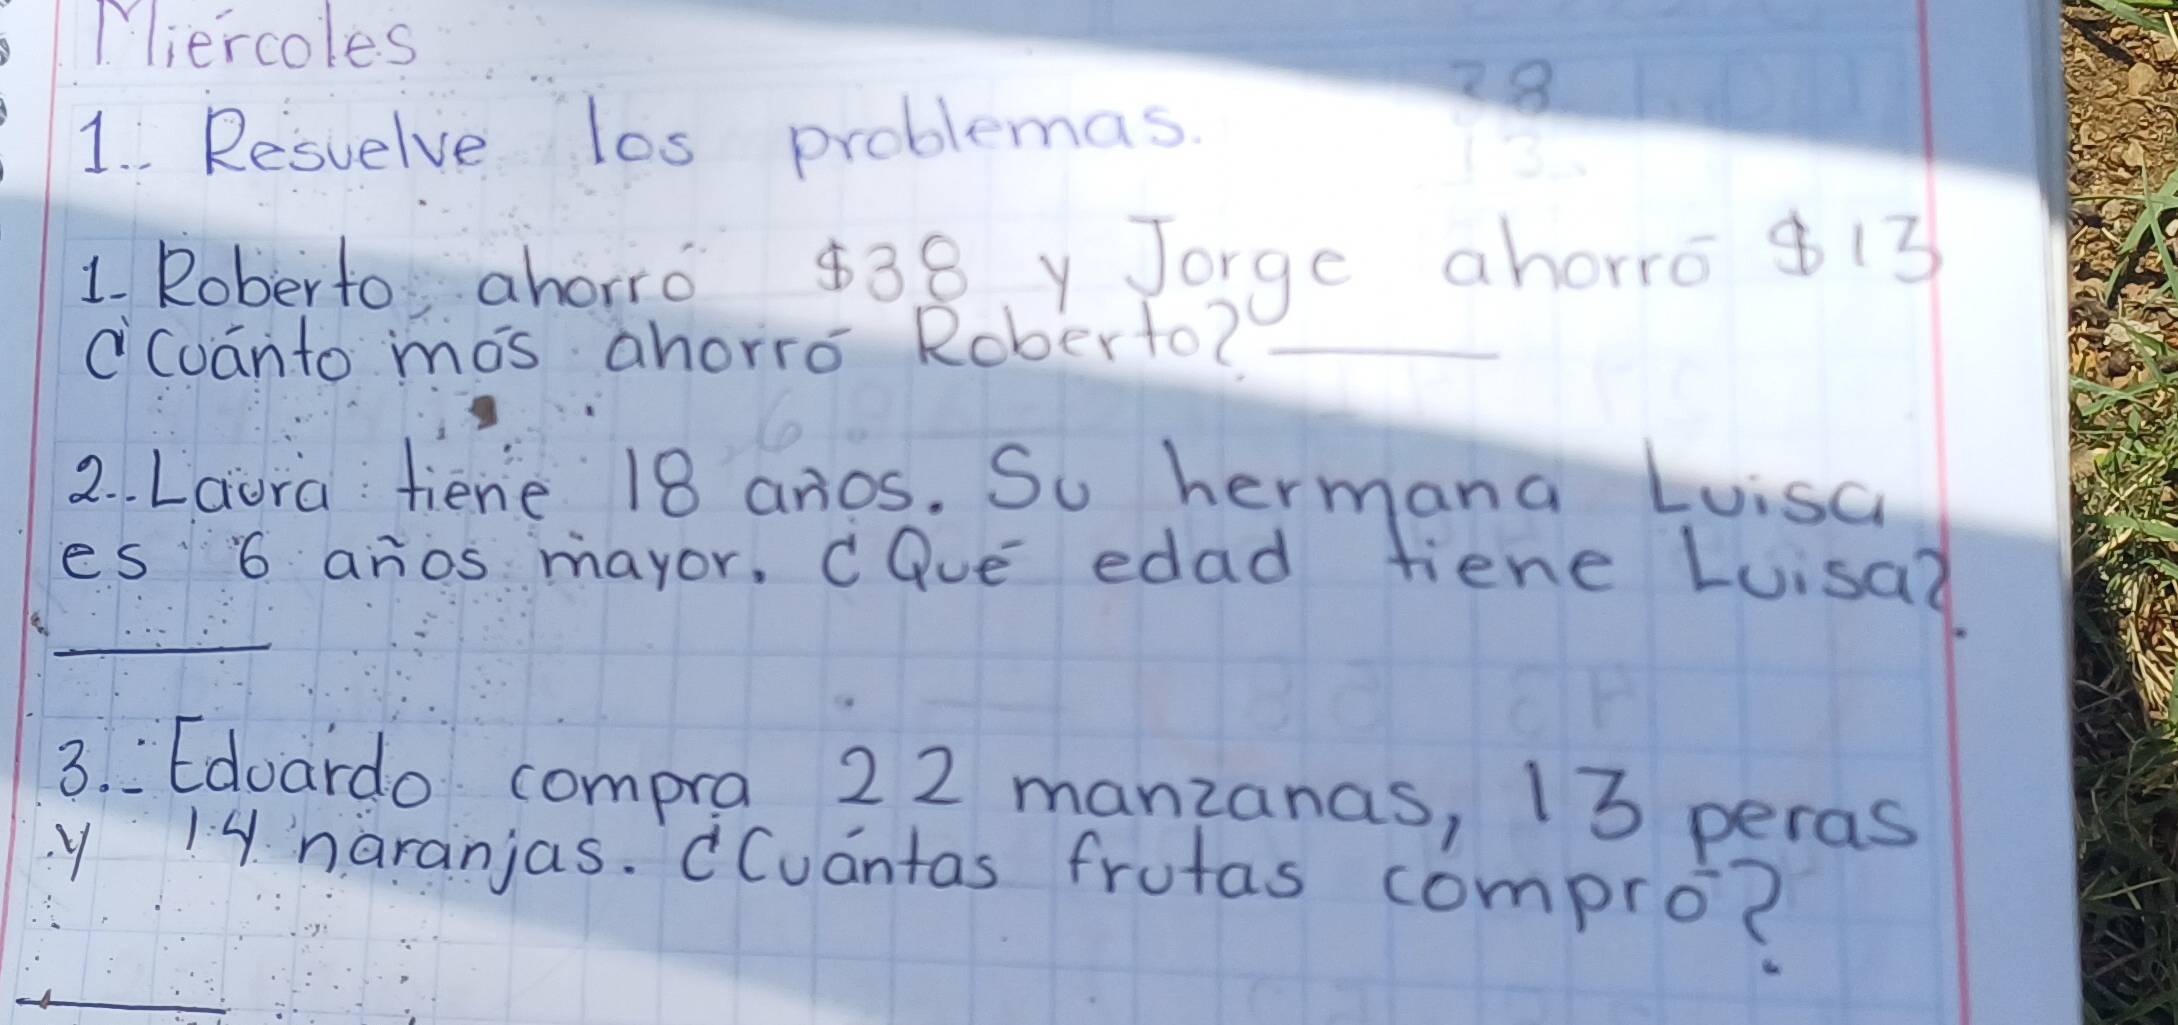 Miércoles
38
1.- Resuelve los problemas.
13
1.- Roberto ahorró $38 y Jorge ahorró $13
¿Cuánto más ahorró Roberto?
2.- Laura tiene 18 años. Su hermana Luisa
es 6 años mayor. ¿Qué edad tiene Luisa?
3.- Eduardo compra 22 manzanas, 13 peras
y 14 naranjas. ¿Cuántas frutas compró?